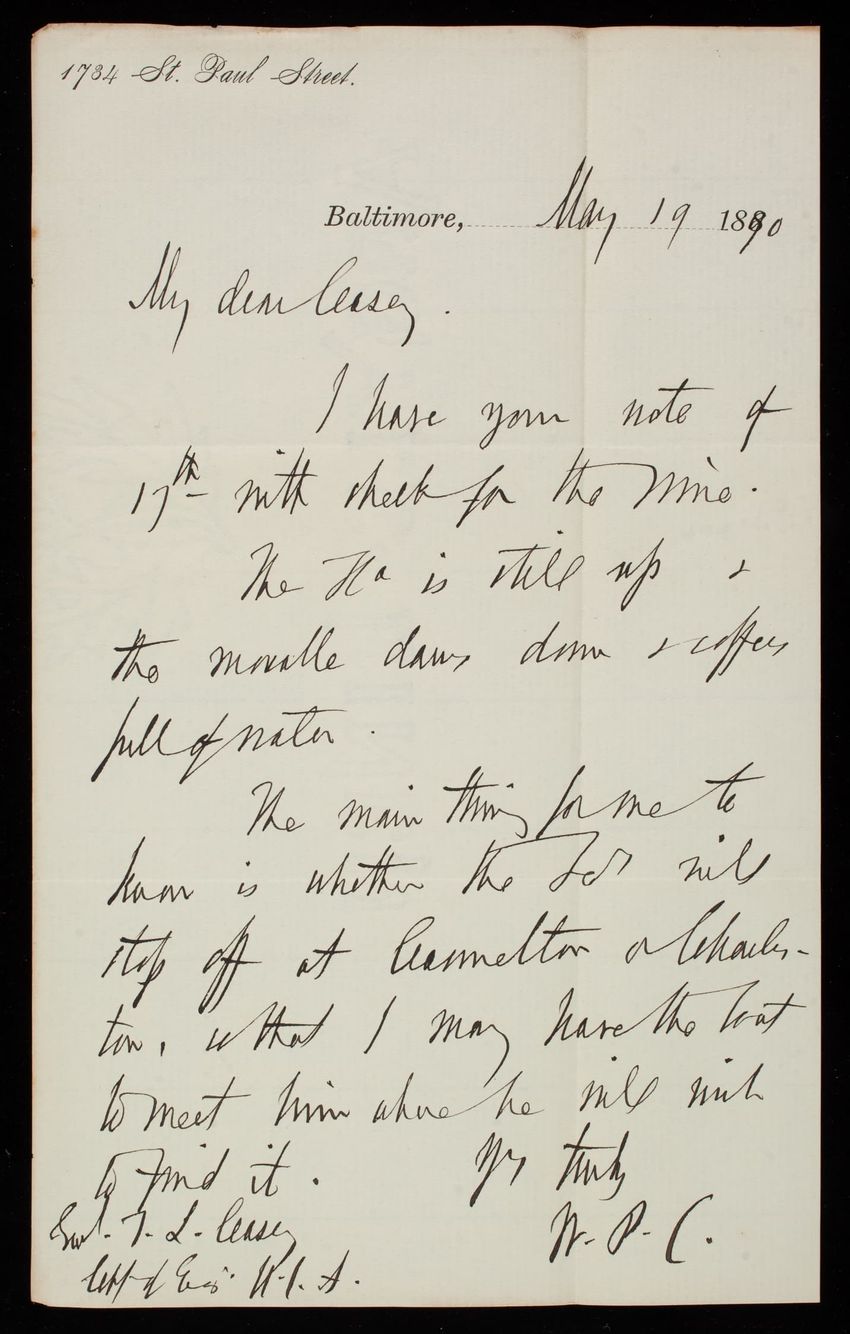 1734 St. Paul Street.
Baltimore, May 19 1890
My dear Casey.
I have your note of
17th with check for the Wine.
The Ka is still up &
the movable dams down & coffers
full of water.
The main thing for me to
know is whether the will
stop off at Cannelton or Charles-
ton, so that I may have the boat
to meet him where he will wish
to find it. Yrs truly
W. P. C.
Genl. T. L. Casey
Chf of Eng. U.S.A.